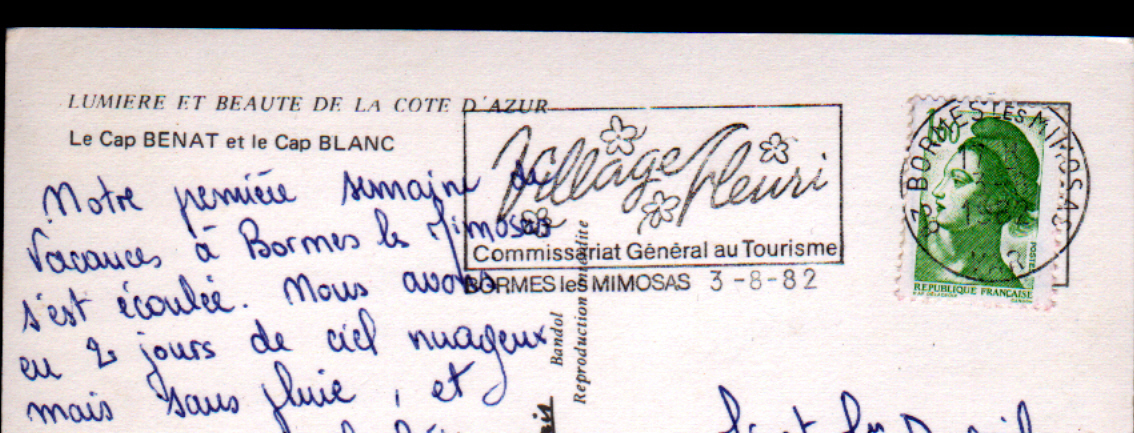 LUMIERE ET BEAUTE DE LA COTE D'AZUR
Le Cap BENAT et le Cap BLANC
Village Fleuri
Commissariat Général au Tourisme
BORMES les MIMOSAS 3-8-82
83 BORMES LES MIMOSAS
VAR
POSTES
REPUBLIQUE FRANÇAISE
Notre première semaine de
Vacances à Bormes les Mimosas
s'est écoulée. Nous avons
eu 2 jours de ciel nuageux
mais sans pluie, et
Bandol
Reproduction interdite